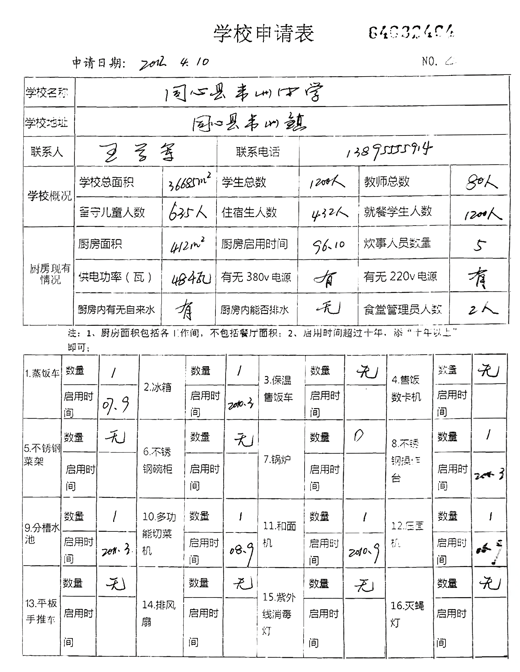 学校申请表
申请日期: 2012 4.10 NO.
学校名称 同心县韦州中学
学校地址 同心县韦州镇
联系人 王学军 联系电话 13895555914
学校概况 学校总面积 36685m² 学生总数 1200人 教师总数 80人
留守儿童人数 635人 住宿生人数 432人 就餐学生人数 1200人
厨房现有情况 厨房面积 412m² 厨房启用时间 96.10 炊事人员数量 5
供电功率（瓦） 484瓦 有无 380v 电源 有 有无 220v 电源 有
厨房内有无自来水 有 厨房内能否排水 无 食堂管理员人数 2人
注: 1、厨房面积包括各工作间，不包括餐厅面积; 2、启用时间超过十年，添“十年以上”
即可;
1.蒸饭车 数量 1 2.冰箱 数量 1 3.保温售饭车 数量 无 4.售饭数卡机 数量 无
启用时间 07.9 启用时间 2010.3 启用时间 启用时间
5.不锈钢菜架 数量 无 6.不锈钢碗柜 数量 无 7.锅炉 数量 0 8.不锈钢操作台 数量 1
启用时间 启用时间 启用时间 启用时间
9.分槽水池 数量 1 10.多功能切菜机 数量 1 11.和面机 数量 1 12.压面机 数量 1
启用时间 2011.3 启用时间 08.9 启用时间 2010.9 启用时间
13.平板手推车 数量 无 14.排风扇 数量 无 15.紫外线消毒灯 数量 无 16.灭蝇灯 数量 无
启用时间 启用时间 启用时间 启用时间